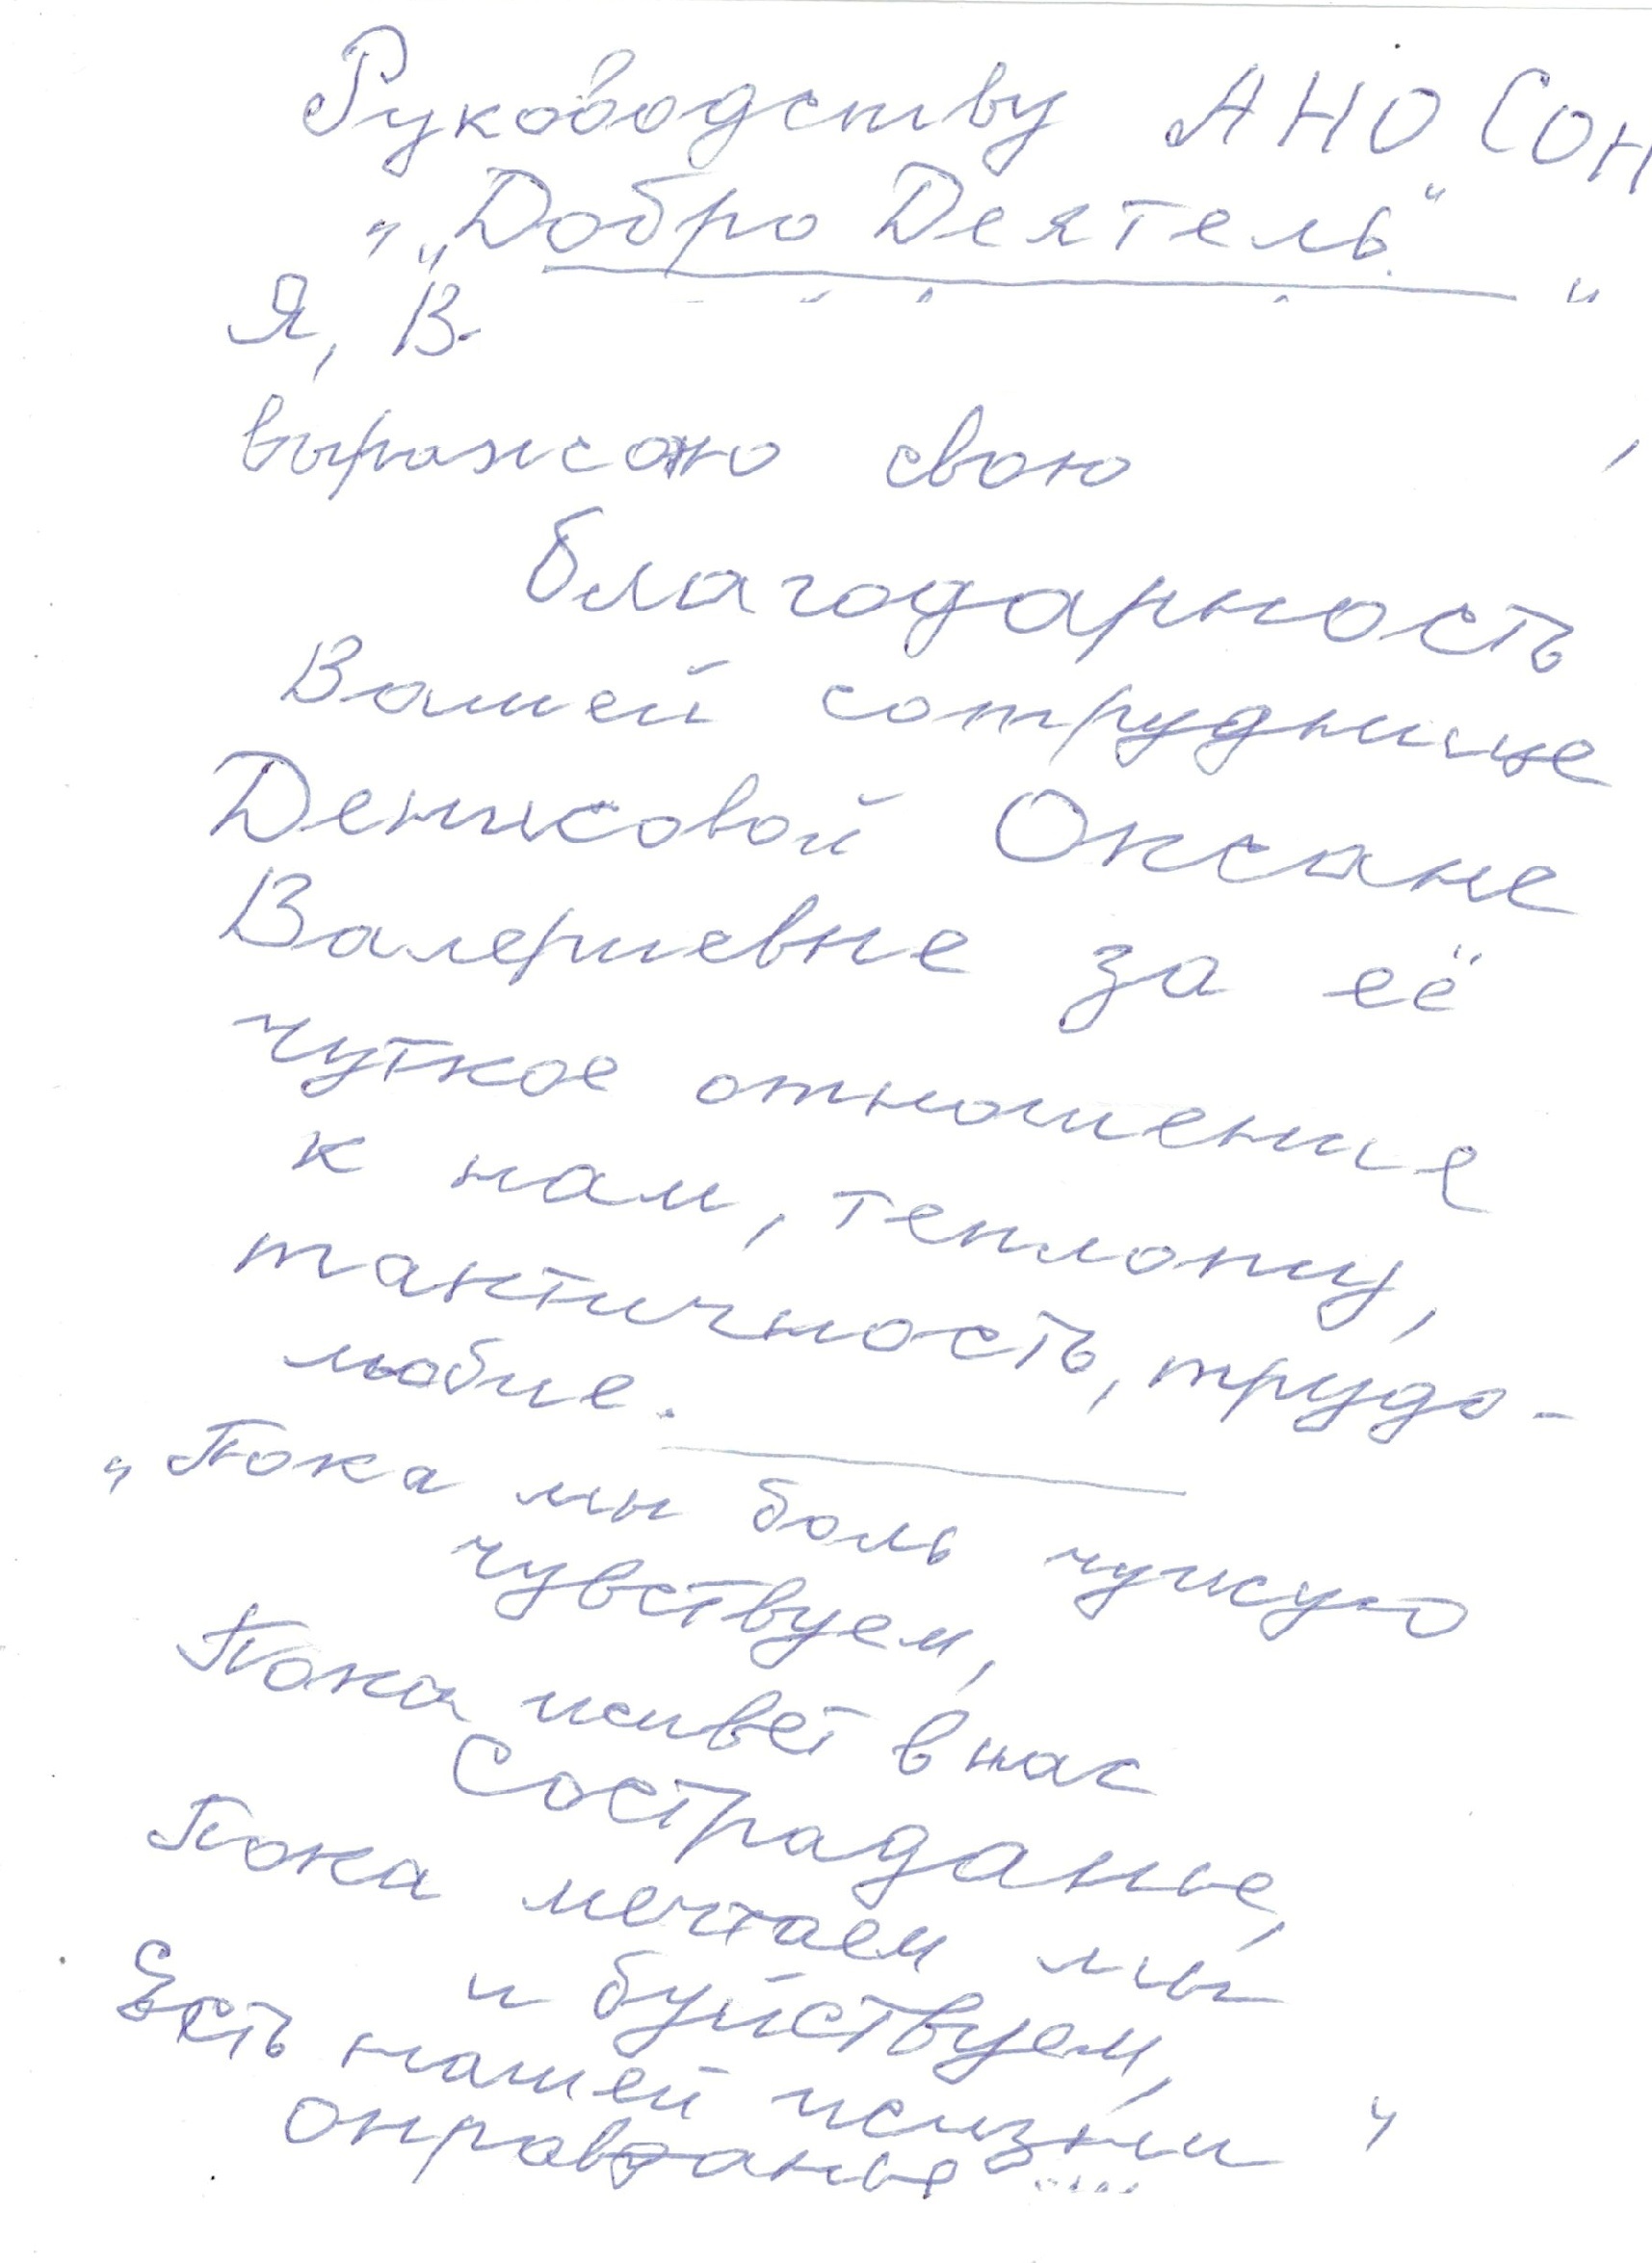 Руководству АНО СОН
„„Добро Деятель"
Я, В
выражаю свою
благодарность
Вашей сотруднице
Денисовой Оксане
Валериевне за её
чуткое отношение
к нам, теплоту,
тактичность, трудо-
любие.
„Пока мы боль чужую
чувствуем,
Пока живёт в нас
Состраданье,
Пока мечтаем мы
и буйствуем,
Есть нашей жизни "
оправданье....